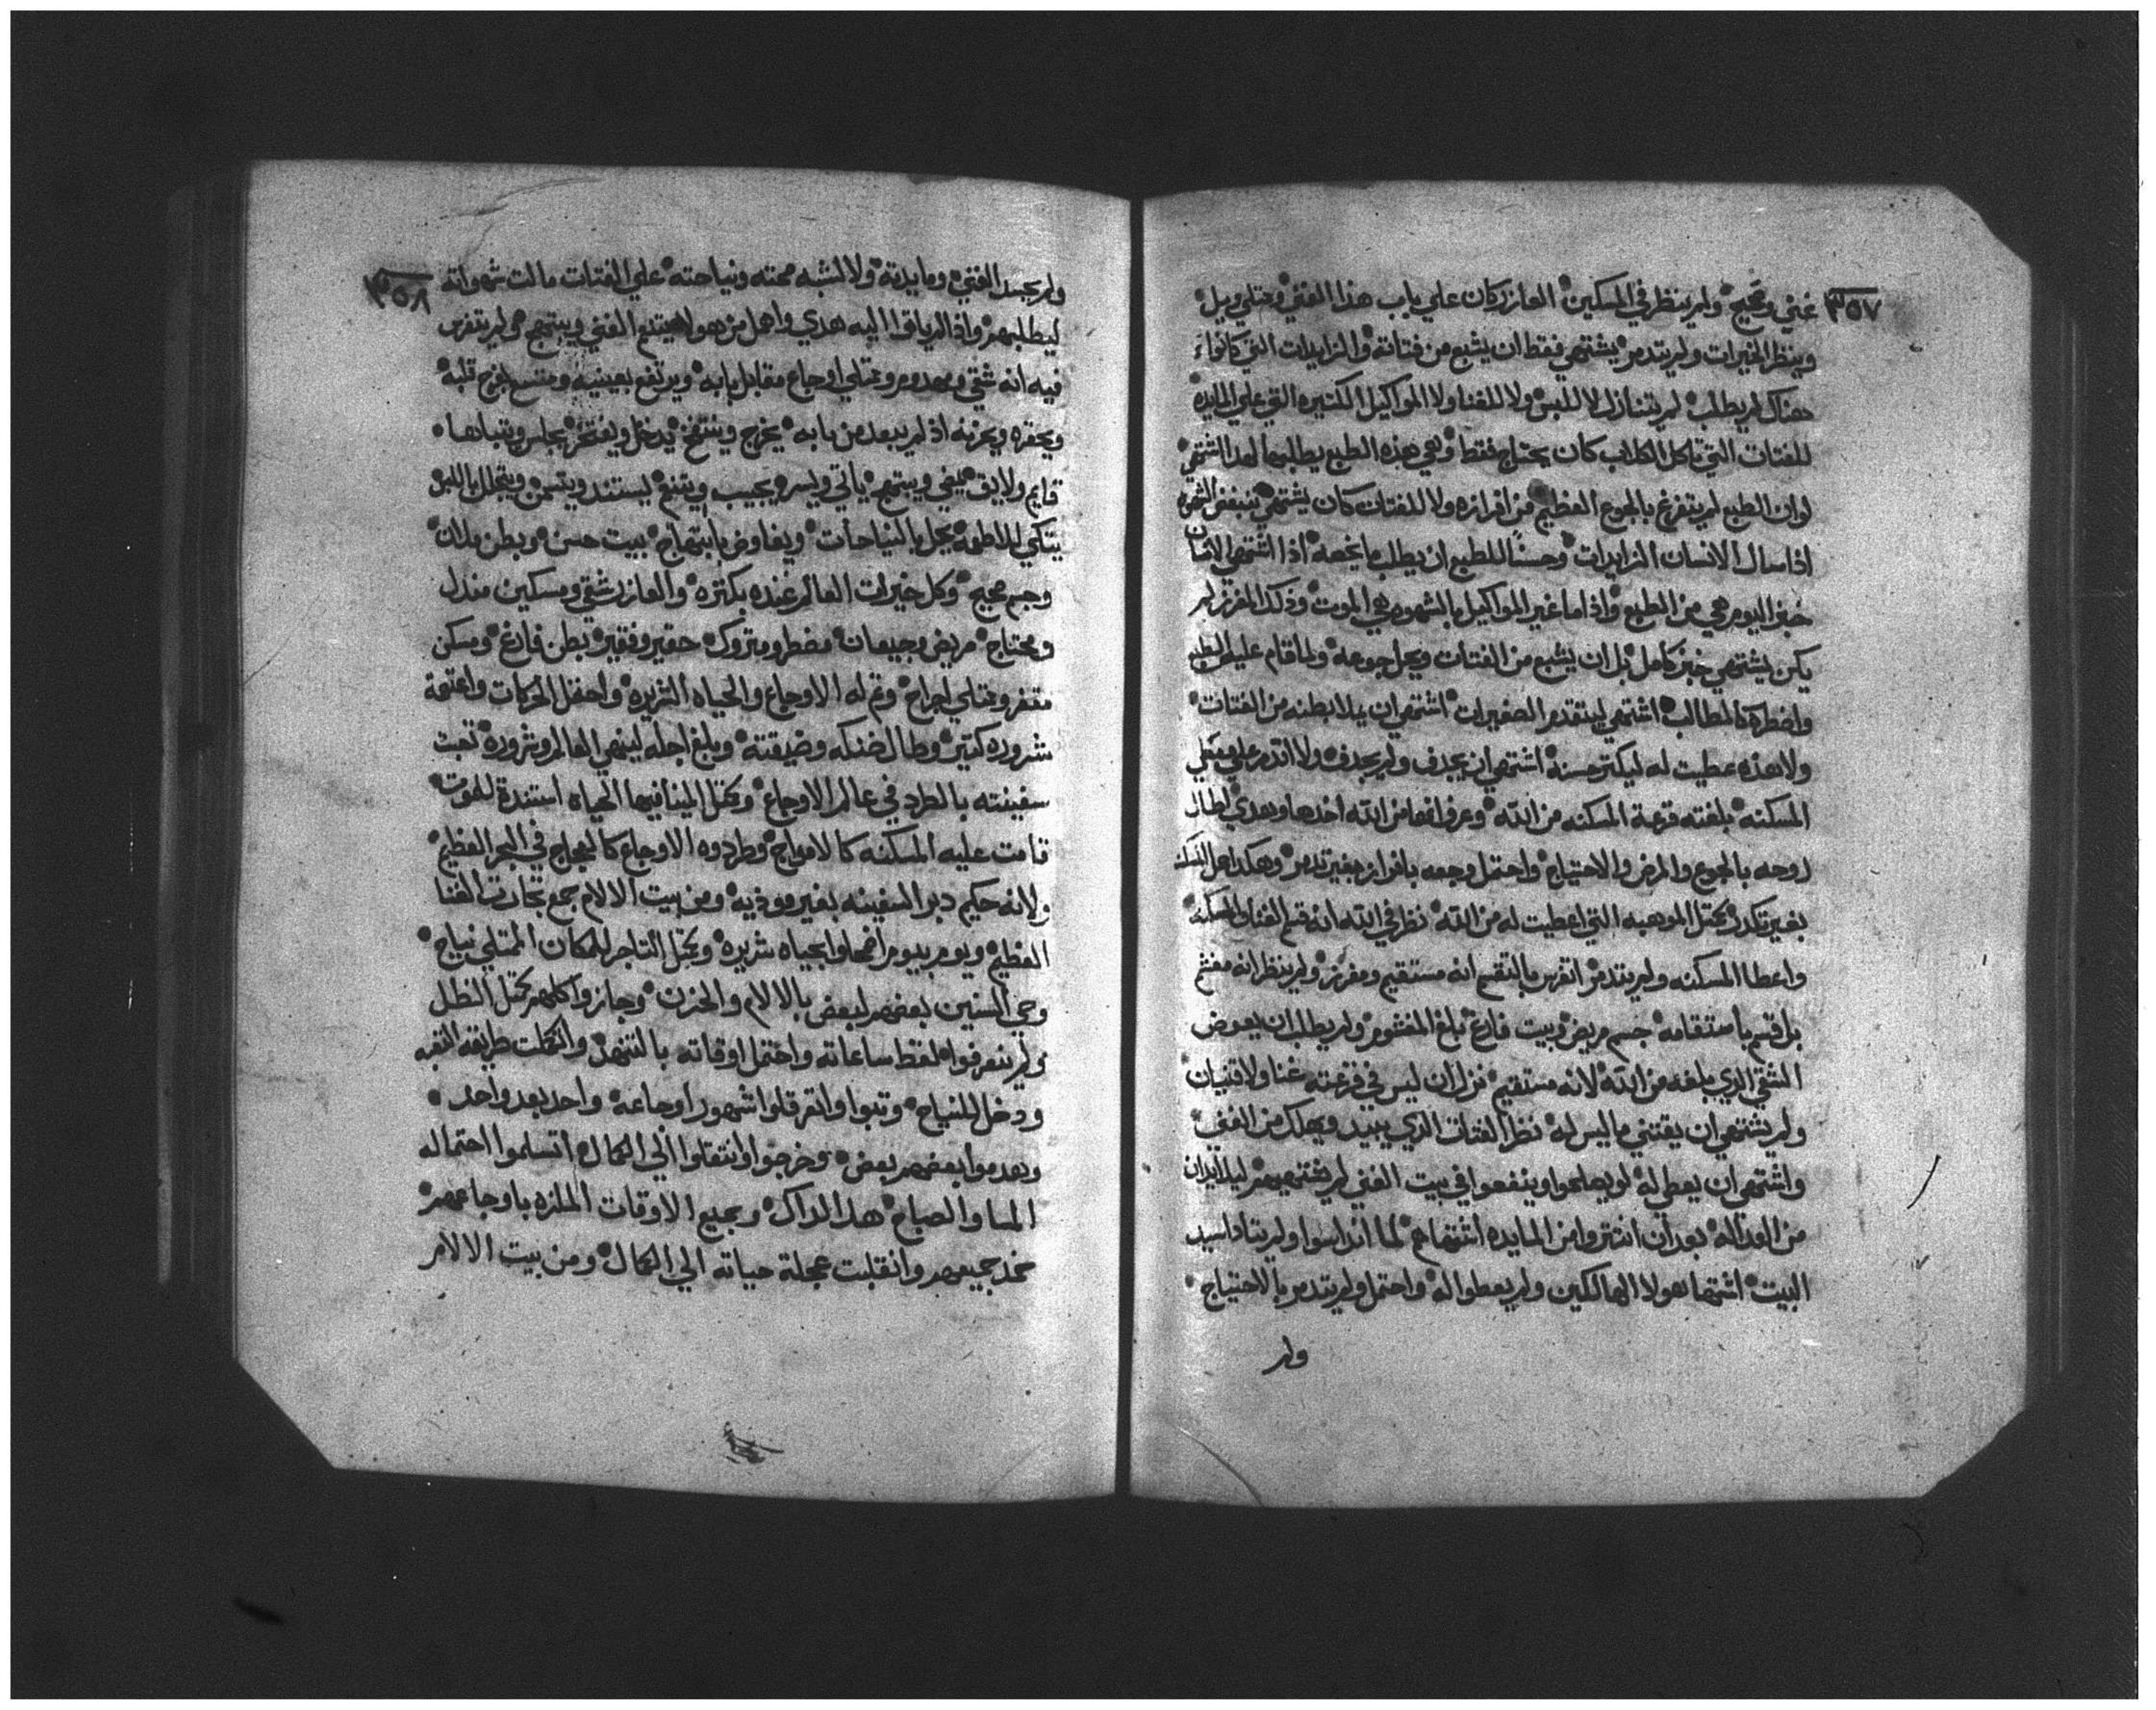 ٣٥٧
غني وقبيح ولم ينظر في المسكين العازر كان علي باب هذا الغني وممتلي وبل
وينظر الخيرات ولم يتدمر يشتهي فقط ان يشبع من فتاته والزايدات التي كانوا
هناك لم يطلب لم يتنازل لا للبس ولا للغنا ولا المواكيل الكتيره التي علي المايده
للفتات التي تاكل الكلاب كان يحتاج فقط وهي هذه الطبع يطلبها لهدا اشتهي
لوان الطبع لم يتفرغ بالجوع العظيم من افرازه ولا للفتات كان يشتهي
اذا سال الانسان الزايدات وحسنًا للطبع ان يطلب ما يخصه اذا اشتهي الانسان
خبز اليوم هي من الطبع واذا ما غير المواكيل بالشهوه هي الموت وذكر المفرز لم
يكن يشتهي خبز كامل بل ان يشبع من الفتات ويحل جوعه ولما قام عليه الطبع
واضطره كالمطالب اشتهي ليتقدم الصغيرات اشتهي ان يملا بطنه من الفتات
ولا هذه عطيت له ليكتر حسنة اشتهي ان يجدف ولم يجدف ولا اتدمر علي معطي
المسكنه بلغته قرعة المسكنه من الله وعرف انها من الله اخدها وهدي لطال
روحه بالجوع والمرض والاحتياج واحتمل وجعه بافراز بغير تدمر وهكدا حمل
بغير تكدر يحتمل الموهبه التي اعطيت له من الله نظر في الله انه قسم الغنا والمسكنه
واعطا المسكنه ولم يتدمر اتفرس بالتقسم انه مستقيم ومفرز ولم ينظر انه مغشم
بل اقتسم باستقامه جسم مريض وبيت فارغ بلغ المغشوم ولم يطلب ان يعوض
الشقي الدي بلغه من الله لانه مستقيم نزل ان ليس في قرعته غنا ولا قنيان
ولم يشتهي ان يقتني ما ليس له نظر الفتات الدي يبيد ويهلك من الغني
واشتهي ان يعطي له لو يصلحوا وينفعوا في بيت الغني لم يشتهيهم ليلا يدان
من العداله بعد ان انتتروا من المايده اشتهاهم لما انداسوا ولم يتاداسيد
البيت اشتها هولا الهالكين ولم يعطوا له واحتمل ولم يتدمر بالاحتياج
ولم
٣٥٨
ولم يحسد الغني ومايدته ولا اتشبه محبته ونياحته علي الفتات مالت شهواته
ليطلبهم واذا لم ياتوا اليه هدي واهمل من هولا يتنعم الغني ويبتهج ولم يتفرس
فيه انه شقي ومهدوم وممتلي اوجاع مقابل بابه ويرتفع بعينيه ومتسع بفرح قلبه
ويحقره ويحزنه اذ لم يبعد من بابه يخرج وينتفخ يدخل ويفتخر يجلس ويتباها
قايم ولايف يمضي ويبتهج ياتي ويسر يجيب ويتنعم ليستند ويتسمن ويتجلل باللبس
يتكي للاطعمه يحل بالنياحات ويفاوض بابتهاج بيت حسن وبطن ملان
وجسم صحيح وكل خيرات العالم عنده بكتره والعازر شقي ومسكين مندل
ومحتاج مريض وجيعان مضطر ومتروك حقير وفقير بطن فارغ ومسكن
مقفر وممتلي اجراح وتم له الاوجاع والحياه الشريره واحتمل الحركات واعتمة
شروره كتير وطال ضنكه وضيقته وبلغ اجله لينهي العالم وشروره تعبت
سفينته بالطرد في عالم الاوجاع وكمثل المينا فيها الحياه استندة للموت
قامت عليه المسكنه كالامواج وطردوه الاوجاع كالعجاج في البحر العظيم
ولانه حكيم دبر السفينه بغير موذيه ومن بيت الالام جمع تجارت الغنا
العظيم ويوم بيوم امضاوا بحياه شريره وكمثل التاجر للمكان الممتلي نياح
وحي السنين بعضهم لبعض بالالام والحزن وجازوا كلهم كمثل الظل
ولم يتعرفوا لقط ساعاته واحتمل اوقاته بالتنهد وانكملت طريقه التعبه
ودخل للنياح وتبوا واتفرقلوا شهور اوجاعه واحد بعد واحد
وبعدموا بعضهم بعض وخرجوا وانتقلوا الي الكمال اتسلموا احتماله
المسا والصباح هدا لداك وجميع الاوقات الملزه باوجاعهم
خمد جميعهم وانقلبت عجلة حياته الي الكمال ومن بيت الالام